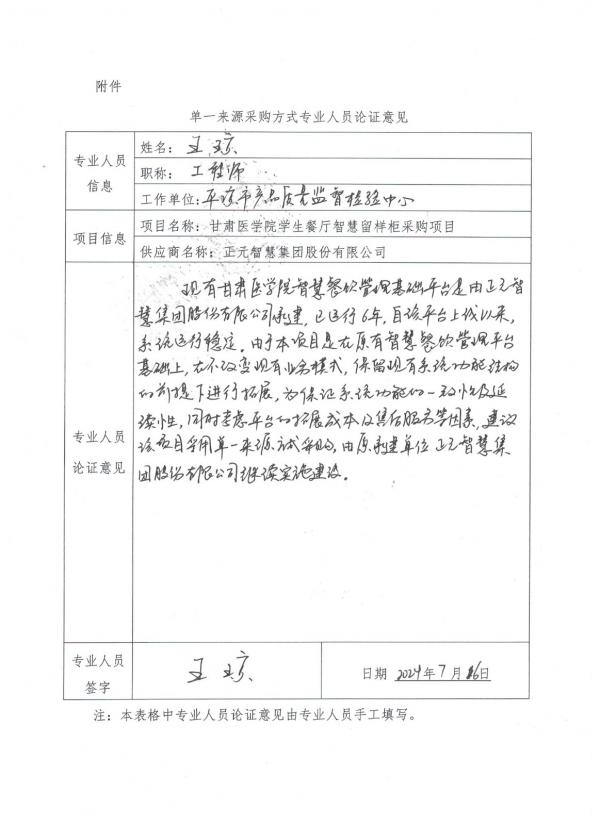 附件
单一来源采购方式专业人员论证意见
专业人员
信息
姓名：王琼
职称：工程师
工作单位：平凉市产品质量监督检验中心
项目信息
项目名称：甘肃医学院学生餐厅智慧留样柜采购项目
供应商名称：正元智慧集团股份有限公司
专业人员
论证意见
现有甘肃医学院智慧餐饮管理基础平台是由正元智
慧集团股份有限公司承建，已运行6年，自该平台上线以来，
系统运行稳定。由于本项目是在原有智慧餐饮管理平台
基础上，在不改变现有业务模式，保留现有系统功能结构
的前提下进行拓展，为保证系统功能的一致性及延
续性，同时考虑平台的拓展成本及售后服务等因素，建议
该项目采用单一来源方式采购，由原承建单位正元智慧集
团股份有限公司继续实施建设。
专业人员
签字
王琼
日期 2024年7月16日
注：本表格中专业人员论证意见由专业人员手工填写。